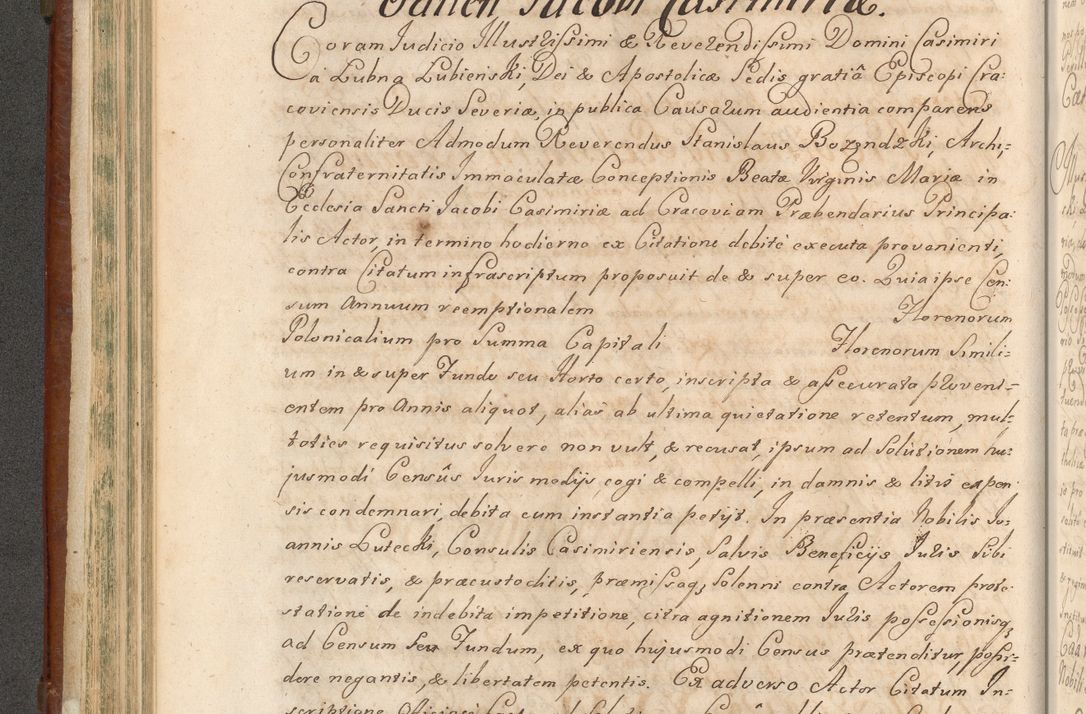 Sancti Jacobi Casimiriæ.
Coram Judicio Illustrissimi & Reverendissimi Domini Casimiri
à Lubna Lubienski, Dei & Apostolicæ Sedis gratiâ Episcopi Cra:
coviensis Ducis Severiæ, in publica Causarum audientia comparens
personaliter Admodum Reverendus Stanislaus Bozendzki, Archi,
Confraternitatis Immaculatæ Conceptionis Beatæ Virginis Mariæ in
Ecclesia Sancti Jacobi Casimiriæ ad Cracoviam Præbendarius Principa:
lis Actor, in termino hodierno ex Citatione debitè executa provenienti,
contra Citatum infrascriptum proposuit de & super eo. Quia ipse Cen:
sum Annuum reemptionalem Florenorum
Polonicalium pro Summa Capitali Florenorum Simili:
um in & super Fundo seu Horto certo, inscripta & assecurata proveni=
entem pro Annis aliquot, alias ab ultima quietatione retentum, mul=
toties requisitus solvere non vult, & recusat, ipsum ad Solutionem hu:
jusmodi Censûs Juris medijs, cogi & compelli, in damnis & litis expen
sis condemnari, debita cum instantia petijt. In præsentia Nobilis Jo:
annis Lutecki, Consulis Casimiriensis, Salvis Beneficijs Juris Sibi
reservatis, & præcustoditis, præmissaq; Solenni contra Actorem prote:
statione de indebita impetitione, citra agnitionem Juris possessionisq;
ad Censum Seu Fundum, ex quo hujusmodi Census prætenditur, possi=
dere negantis, & libertatem petentis. Ex adverso Actor Citatum In=